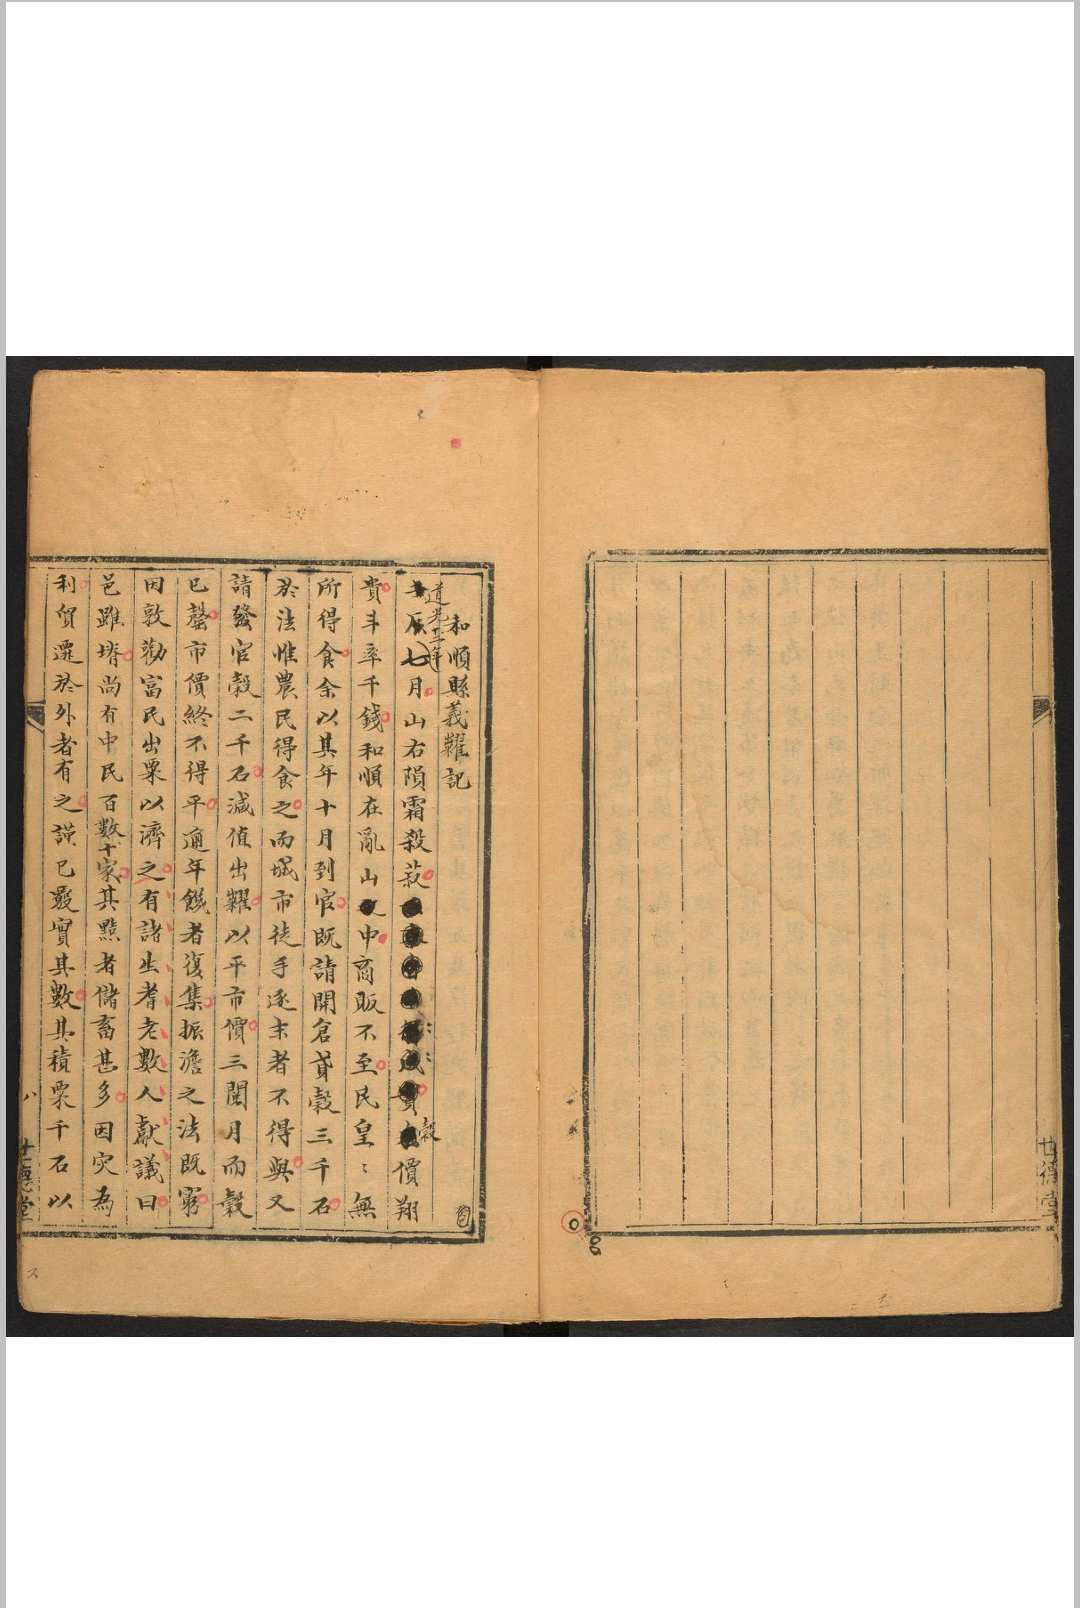 世德堂
和順縣義糶記
道光十二年
辰七月山右隕霜殺菽價翔
穀
貴斗率千錢和順在亂山中商販不至民皇〻無
所得食余以其年十月到官既請開倉貸穀三千石
於法惟農民得食之而城市徒手逐末者不得與又
請發官穀二千石減值出糶以平市價三閱月而穀
已罄市價終不得平適年饑者復集振澹之法既窮
因敦勸富民出粟以濟之有諸生耆老數人獻議曰
邑雖塉尚有中民百數十家其點者儲畜甚多因灾為
利貿遷於外者有之謹已覈實其數其積粟千石以
八
世德堂